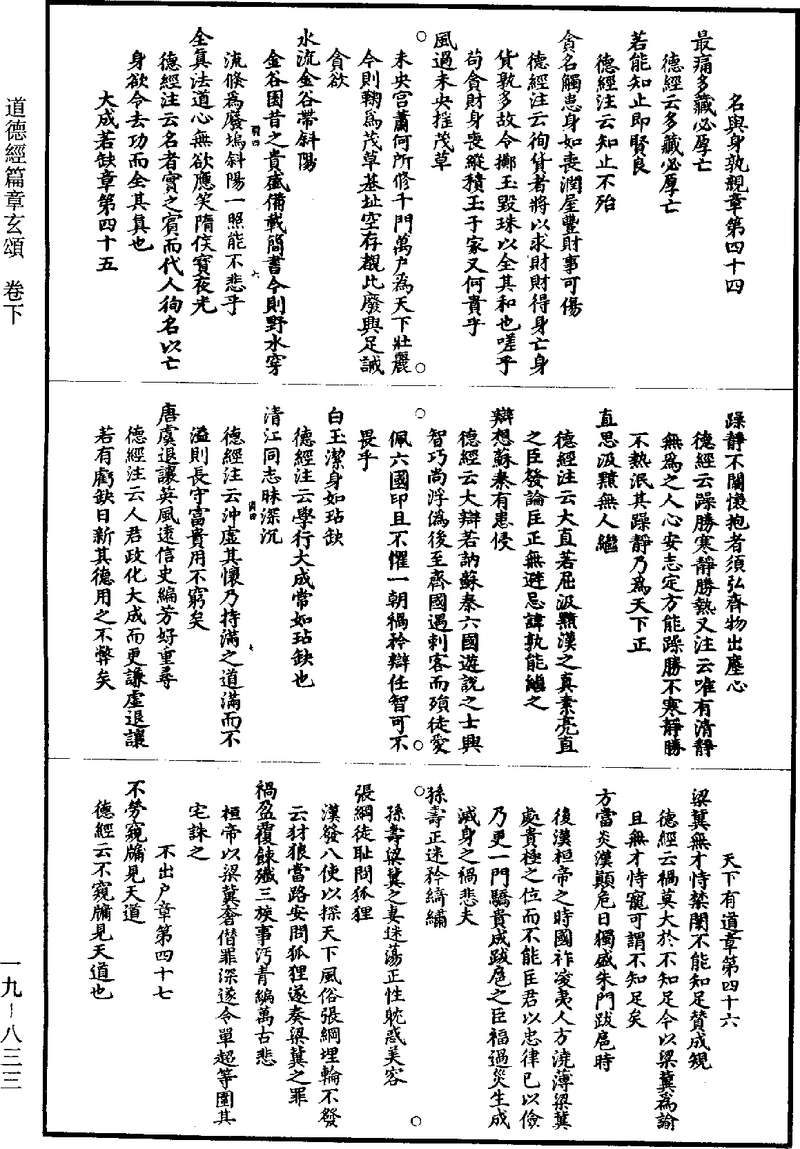 道德經篇章玄頌　卷下
名與身孰親章第四十四
最痛多藏必厚亡
德經云多藏必厚亡
若能知止即賢良
德經注云知止不殆
貪名觸患身如喪潤屋豐財事可傷
德經注云徇貨者將以求財財得身亡身
貨孰多故令擲玉毀珠以全其和也嗟乎
苟貪財身喪縱積玉于家又何貴乎
風過未央揺茂草
未央宮蕭何所修千門萬戶為天下壯麗
今則鞠為茂草基址空存覩比廢興足誡
貪欲
水流金谷帶斜陽
金谷園昔之貴盛備載簡書今則野水穿
流倏為廢塢斜陽一照能不悲乎
全真法道心無欲應笑隋侯寶夜光
德經注云名者實之賓而代人徇名以亡
身欲令去功而全其真也
大成若缺章第四十五
躁靜不關懷抱者須弘齊物出塵心
德經云躁勝寒靜勝熱又注云唯有清靜
無為之人心安志定方能躁勝不寒靜勝
不熱泯其躁靜乃為天下正
直思汲黯無人繼
德經注云大直若屈汲黯漢之真素亮直
之臣發論匡正無避忌諱孰能繼之
辯想蘇秦有患侵
德經云大辯若訥蘇秦六國遊說之士興
智巧尚浮偽後至齊國遇刺客而殞徒愛
佩六國印且不懼一朝禍矜辯任智可不
畏乎
白玉潔身如玷缺
德經注云學行大成常如玷缺也
清江同志昧深沉
德經注云沖虛其懷乃持滿之道滿而不
溢則長守富貴用不窮矣
唐虞退讓英風遠信史編芳好重尋
德經注云人君政化大成而更謙虛退讓
若有虧缺日新其德用之不弊矣
天下有道章第四十六
梁冀無才恃禁闈不能知足贊成規
德經云禍莫大於不知足今以梁冀為諭
且無才恃寵可謂不知足矣
方當炎漢顚危日獨盛朱門跋扈時
後漢桓帝之時國祚凌夷人方澆薄梁冀
處貴極之位而不能匡君以忠律已以儉
乃更一門驕貴成跋扈之臣福過災生成
滅身之禍悲夫
孫壽正迷矜綺繡
孫壽梁冀之妻迷蕩正性躭惑美容
張綱徒恥問狐狸
漢發八使以採天下風俗張綱埋輪不發
云犲狼當路安問狐狸遂奏梁冀之罪
禍盈覆餗殲三族事汚青編萬古悲
桓帝以梁冀奢僣罪深遂令單超等圍其
宅誅之
不出戶章第四十七
不勞窺牖見天道
德經云不窺牖見天道也
一九-八三三